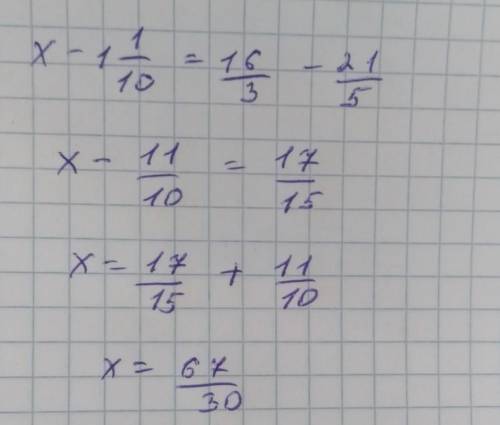 x - 1 1/10 = 16/3 - 21/5
x - 11/10 = 17/15
x = 17/15 + 11/10
x = 67/30